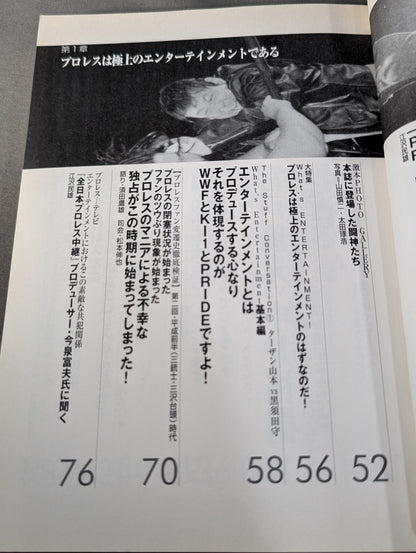 第1章
プロレスは極上のエンターテインメントである
激本PHOTO GALLERY
本誌に登場した闘神たち
写真=山田慎二・太田琢浩
52
大特集
What's ENTERTAINMENT!
プロレスは極上のエンターテインメントのはずなのだ!
56
The Staff Conversation① ターザン山本 vs 黒須田守
What's Entertainment 基本編
エンターテインメントとは
プロデュースする心なり
それを体現するのが
WWFとK-1とPRIDEですよ!
58
【プロレスファン変遷史徹底検証】第二回・平成前半(三銃士・三沢台頭)時代
プロレスの閉塞状況が始まった
ファンのツウぶり現象が始まった
プロレスのマニアによる不幸な
独占がこの時期に始まってしまった!
語り・須田鷹雄 司会・松本伸也
70
プロレス―テレビ
エンターテインメントにおけるこの素敵な共犯関係
『全日本プロレス中継』プロデューサー・今泉富夫氏に聞く
江沢民雄
76
江沢民雄